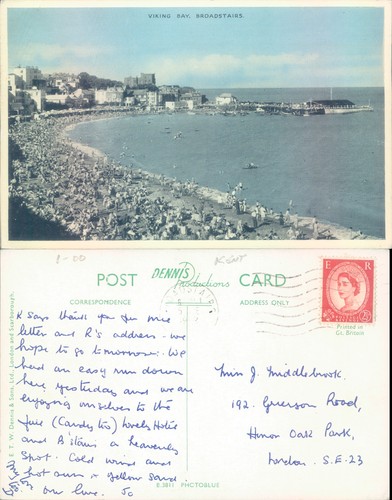 VIKING BAY, BROADSTAIRS.
8-00
Kent
POST
DENNIS
Productions
CARD
CORRESPONDENCE
ADDRESS ONLY
E R
Printed in
Gt. Britain
K says thank you for nice
letter and R's address - we
hope to go tomorrow. We
had an easy run down
here yesterday and we are
enjoying ourselves to the
full (Candy too) lovely Hotel
and B'stairs a heavenly
spot. Cold wind and
hot sun & yellow sand
our love. Jo
Miss J. Middlebrook.
192, Grierson Road,
Honor Oak Park,
London. S.E.23
E. T. W. Dennis & Sons, Ltd., London and Scarborough.
B.3811 PHOTOBLUE